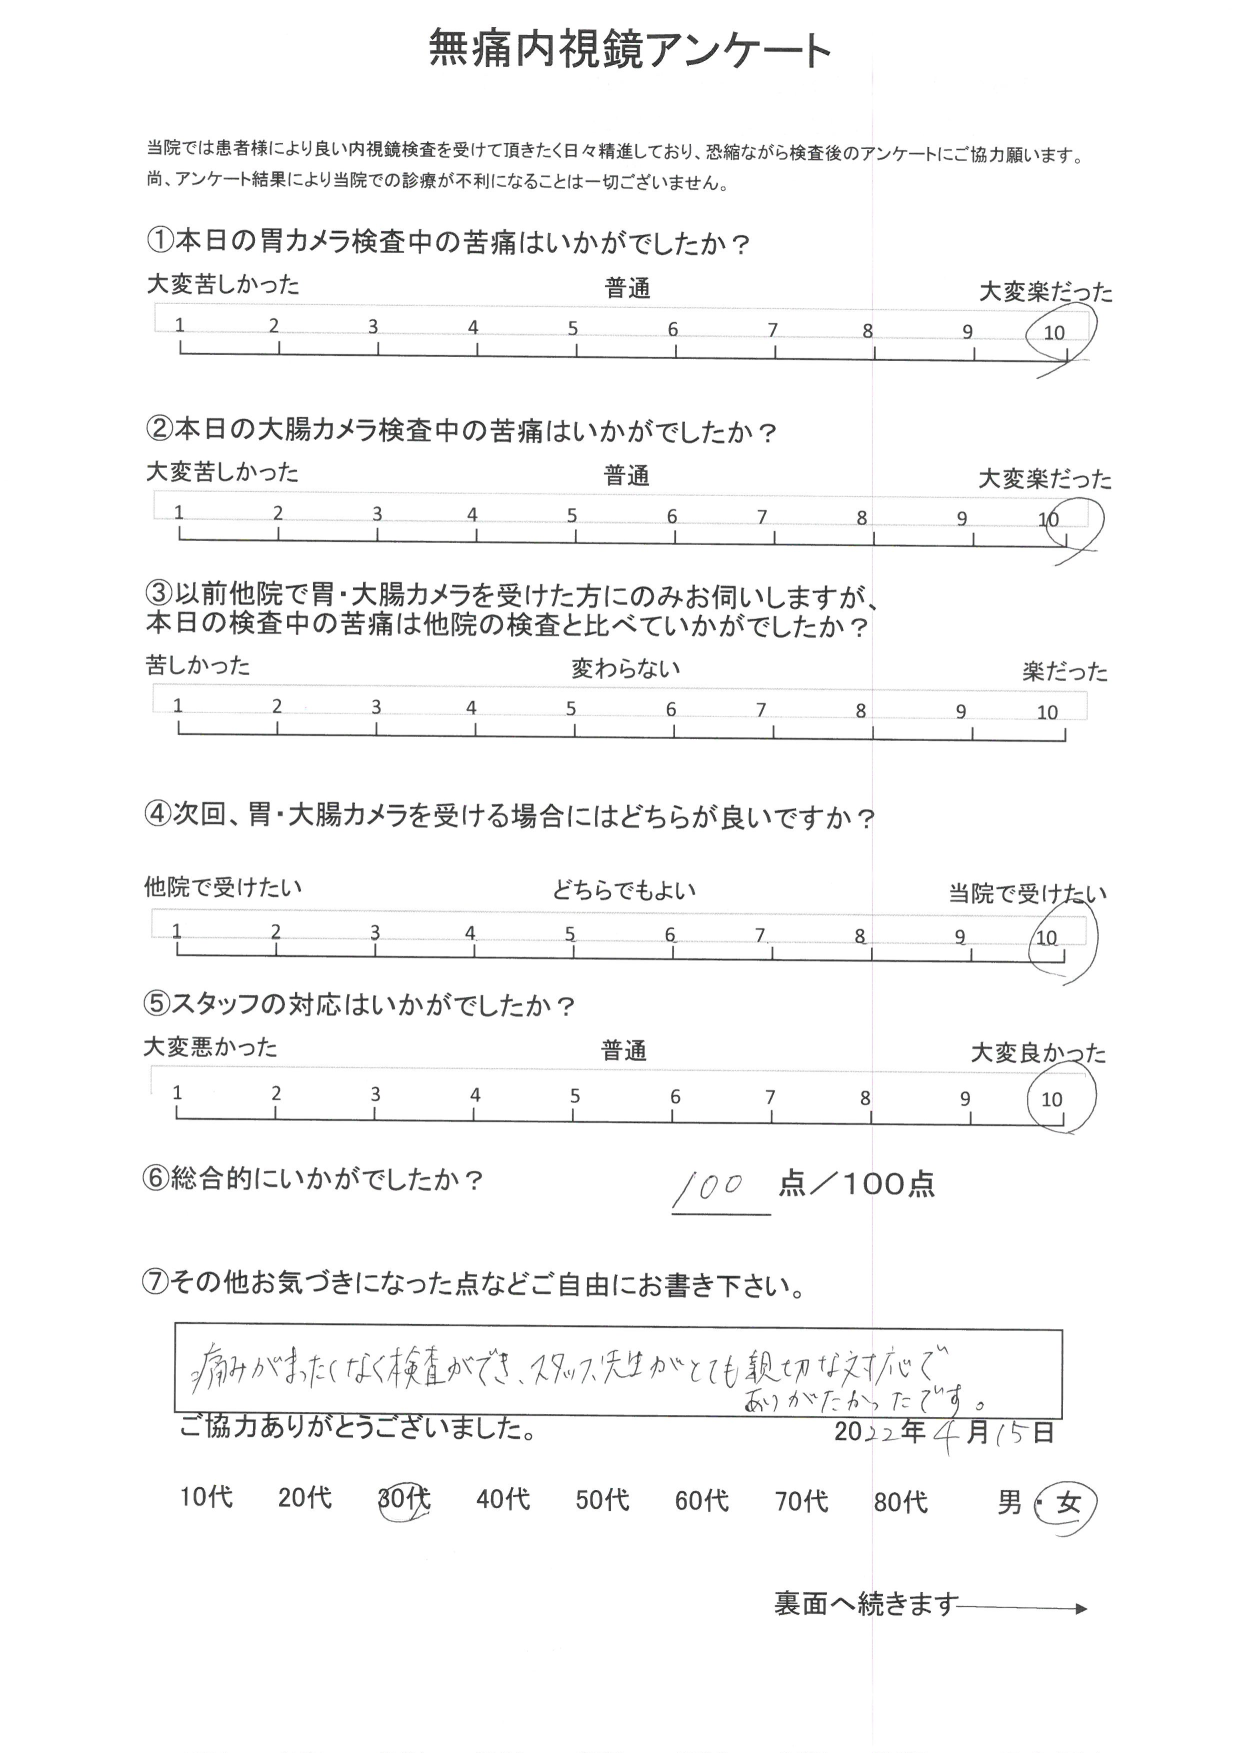 無痛内視鏡アンケート
当院では患者様により良い内視鏡検査を受けて頂きたく日々精進しており、恐縮ながら検査後のアンケートにご協力願います。
尚、アンケート結果により当院での診療が不利になることは一切ございません。
①本日の胃カメラ検査中の苦痛はいかがでしたか？
大変苦しかった 普通 大変楽だった
1 2 3 4 5 6 7 8 9 10
②本日の大腸カメラ検査中の苦痛はいかがでしたか？
大変苦しかった 普通 大変楽だった
1 2 3 4 5 6 7 8 9 10
③以前他院で胃・大腸カメラを受けた方にのみお伺いしますが、
本日の検査中の苦痛は他院の検査と比べていかがでしたか？
苦しかった 変わらない 楽だった
1 2 3 4 5 6 7 8 9 10
④次回、胃・大腸カメラを受ける場合にはどちらが良いですか？
他院で受けたい どちらでもよい 当院で受けたい
1 2 3 4 5 6 7 8 9 10
⑤スタッフの対応はいかがでしたか？
大変悪かった 普通 大変良かった
1 2 3 4 5 6 7 8 9 10
⑥総合的にいかがでしたか？ 100 点／100点
⑦その他お気づきになった点などご自由にお書き下さい。
痛みがまったくなく検査ができ、スタッフ、先生がとても親切な対応で
ありがたかったです。
ご協力ありがとうございました。 2022年4月15日
10代 20代 30代 40代 50代 60代 70代 80代 男・女
裏面へ続きます